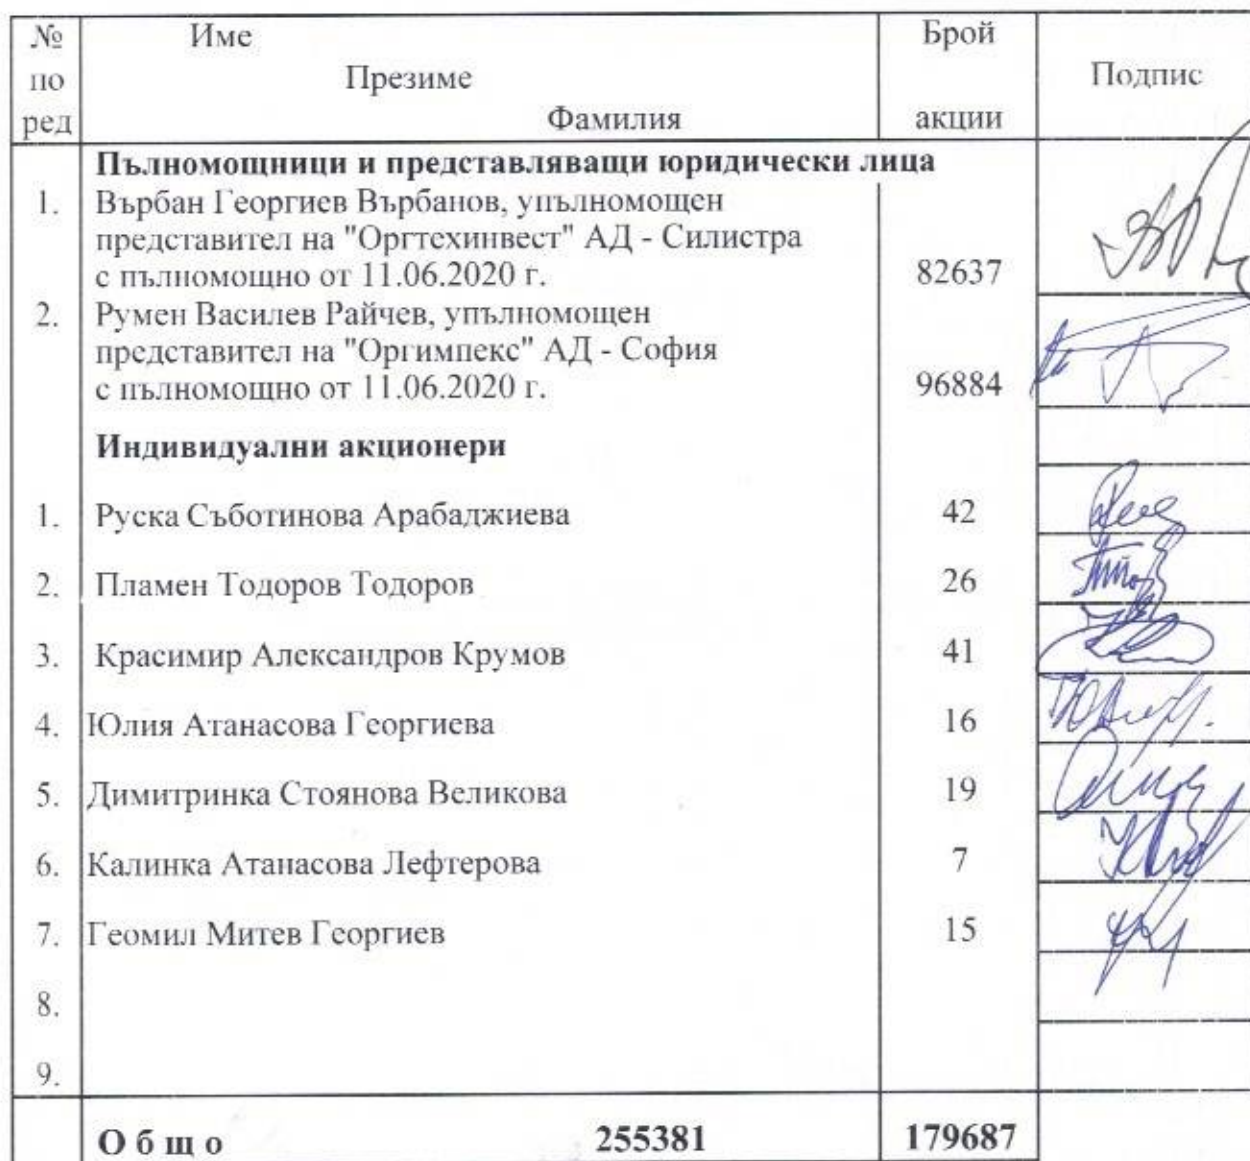 № Име Брой
по Презиме Подпис
ред Фамилия акции
Пълномощници и представляващи юридически лица
1. Върбан Георгиев Върбанов, упълномощен
представител на "Оргтехинвест" АД - Силистра
с пълномощно от 11.06.2020 г. 82637
2. Румен Василев Райчев, упълномощен
представител на "Оргимпекс" АД - София
с пълномощно от 11.06.2020 г. 96884
Индивидуални акционери
1. Руска Съботинова Арабаджиева 42
2. Пламен Тодоров Тодоров 26
3. Красимир Александров Крумов 41
4. Юлия Атанасова Георгиева 16
5. Димитринка Стоянова Великова 19
6. Калинка Атанасова Лефтерова 7
7. Геомил Митев Георгиев 15
8.
9.
О б щ о 255381 179687